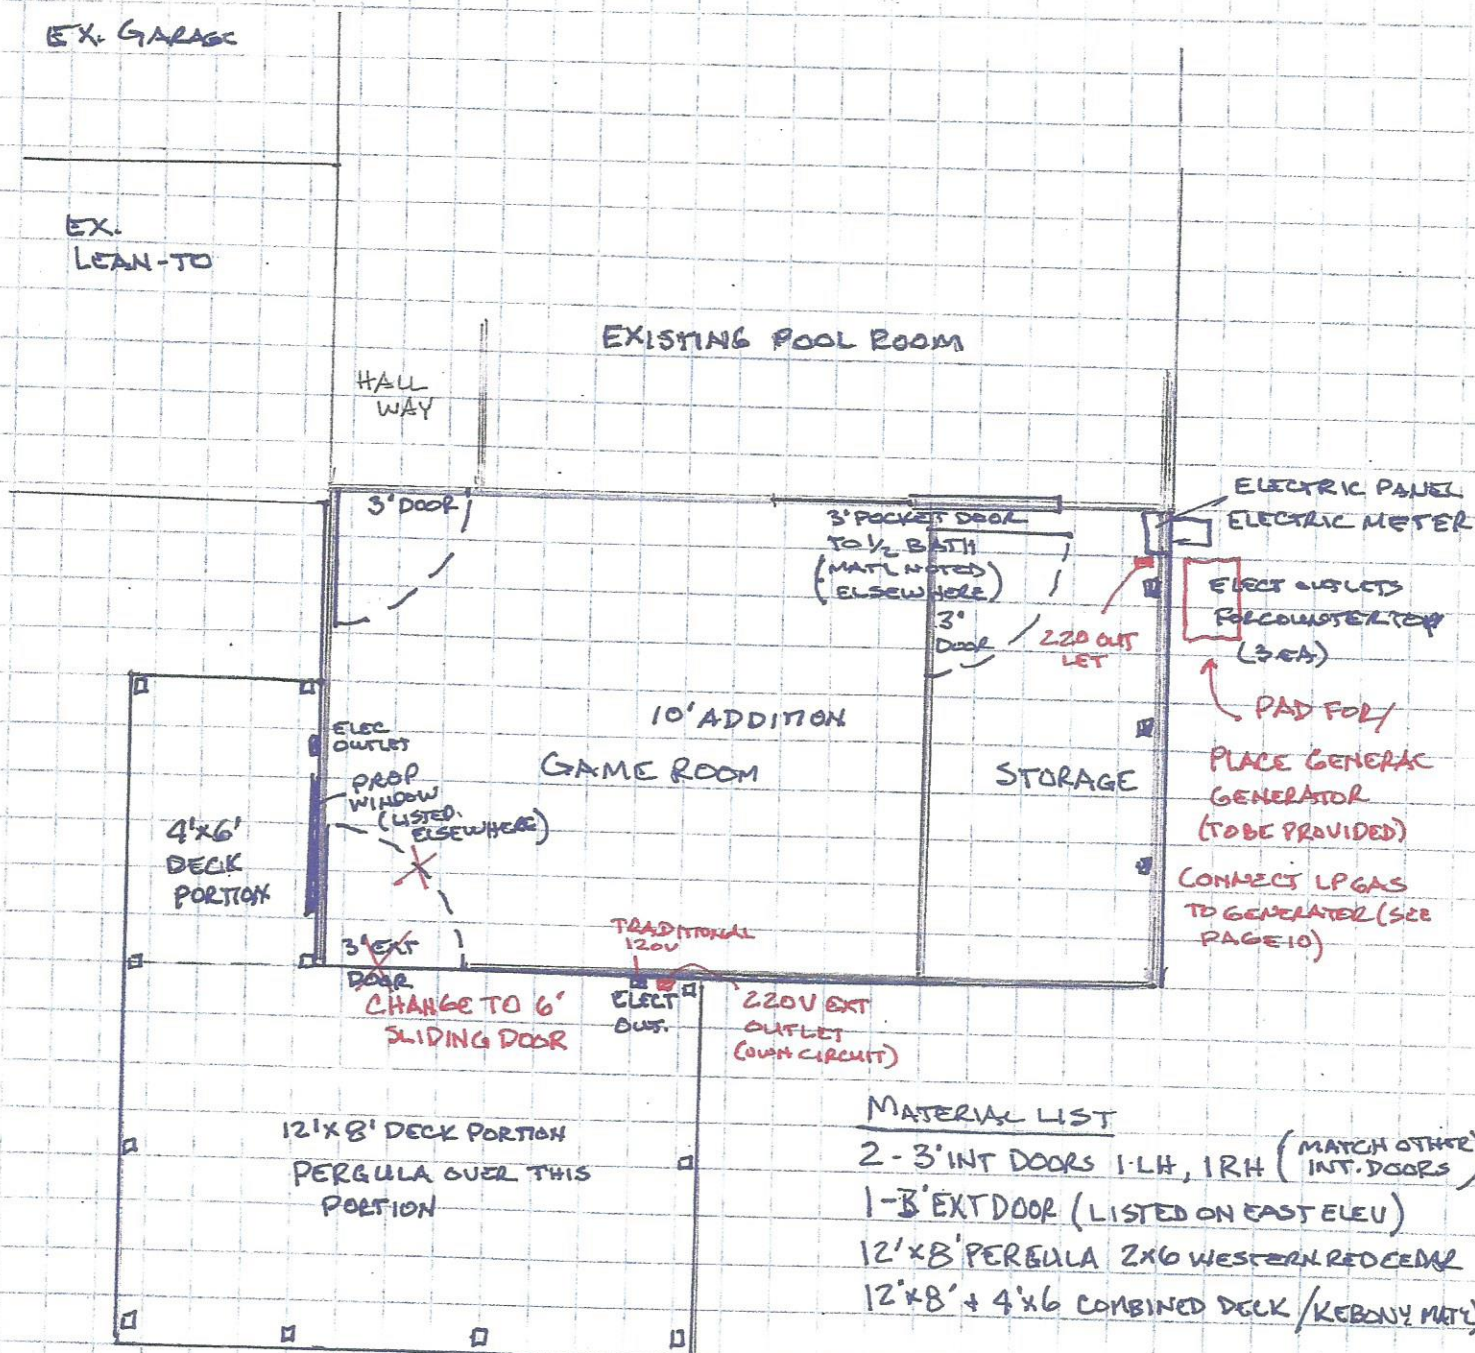 EX. GARAGE
EX.
LEAN-TO
EXISTING POOL ROOM
HALL
WAY
3' DOOR
3' POCKET DOOR
TO 1/2 BATH
(MAT'L NOTED
ELSEWHERE)
3'
DOOR
220 OUT
LET
ELECTRIC PANEL
ELECTRIC METER
ELECT OUTLETS
FOR COUNTERTOP
(3 EA)
PAD FOR/
PLACE GENERAC
GENERATOR
(TO BE PROVIDED)
CONNECT LP GAS
TO GENERATER (SEE
PAGE 10)
10' ADDITION
GAME ROOM
STORAGE
ELEC
OUTLET
PROP
WINDOW
(LISTED
ELSEWHERE)
4'x6'
DECK
PORTION
3' EXT
DOOR
CHANGE TO 6'
SLIDING DOOR
TRADITIONAL
120V
ELECT
OUT.
220V EXT
OUTLET
(OWN CIRCUIT)
12'x8' DECK PORTION
PERGULA OVER THIS
PORTION
MATERIAL LIST
2-3' INT DOORS 1-LH, 1RH (MATCH OTHER
INT. DOORS)
1-3' EXT DOOR (LISTED ON EAST ELEV)
12'x8' PERGULA 2x6 WESTERN RED CEDAR
12'x8' + 4'x6 COMBINED DECK /KEBONY MAT'L